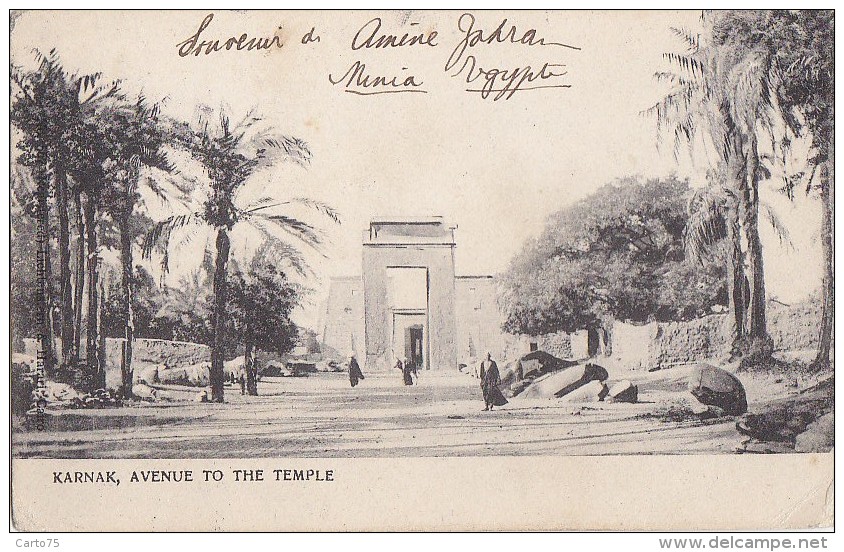 Souvenir de Amine Jahran
Minia Egypte
KARNAK, AVENUE TO THE TEMPLE
Carto75
www.delcampe.net